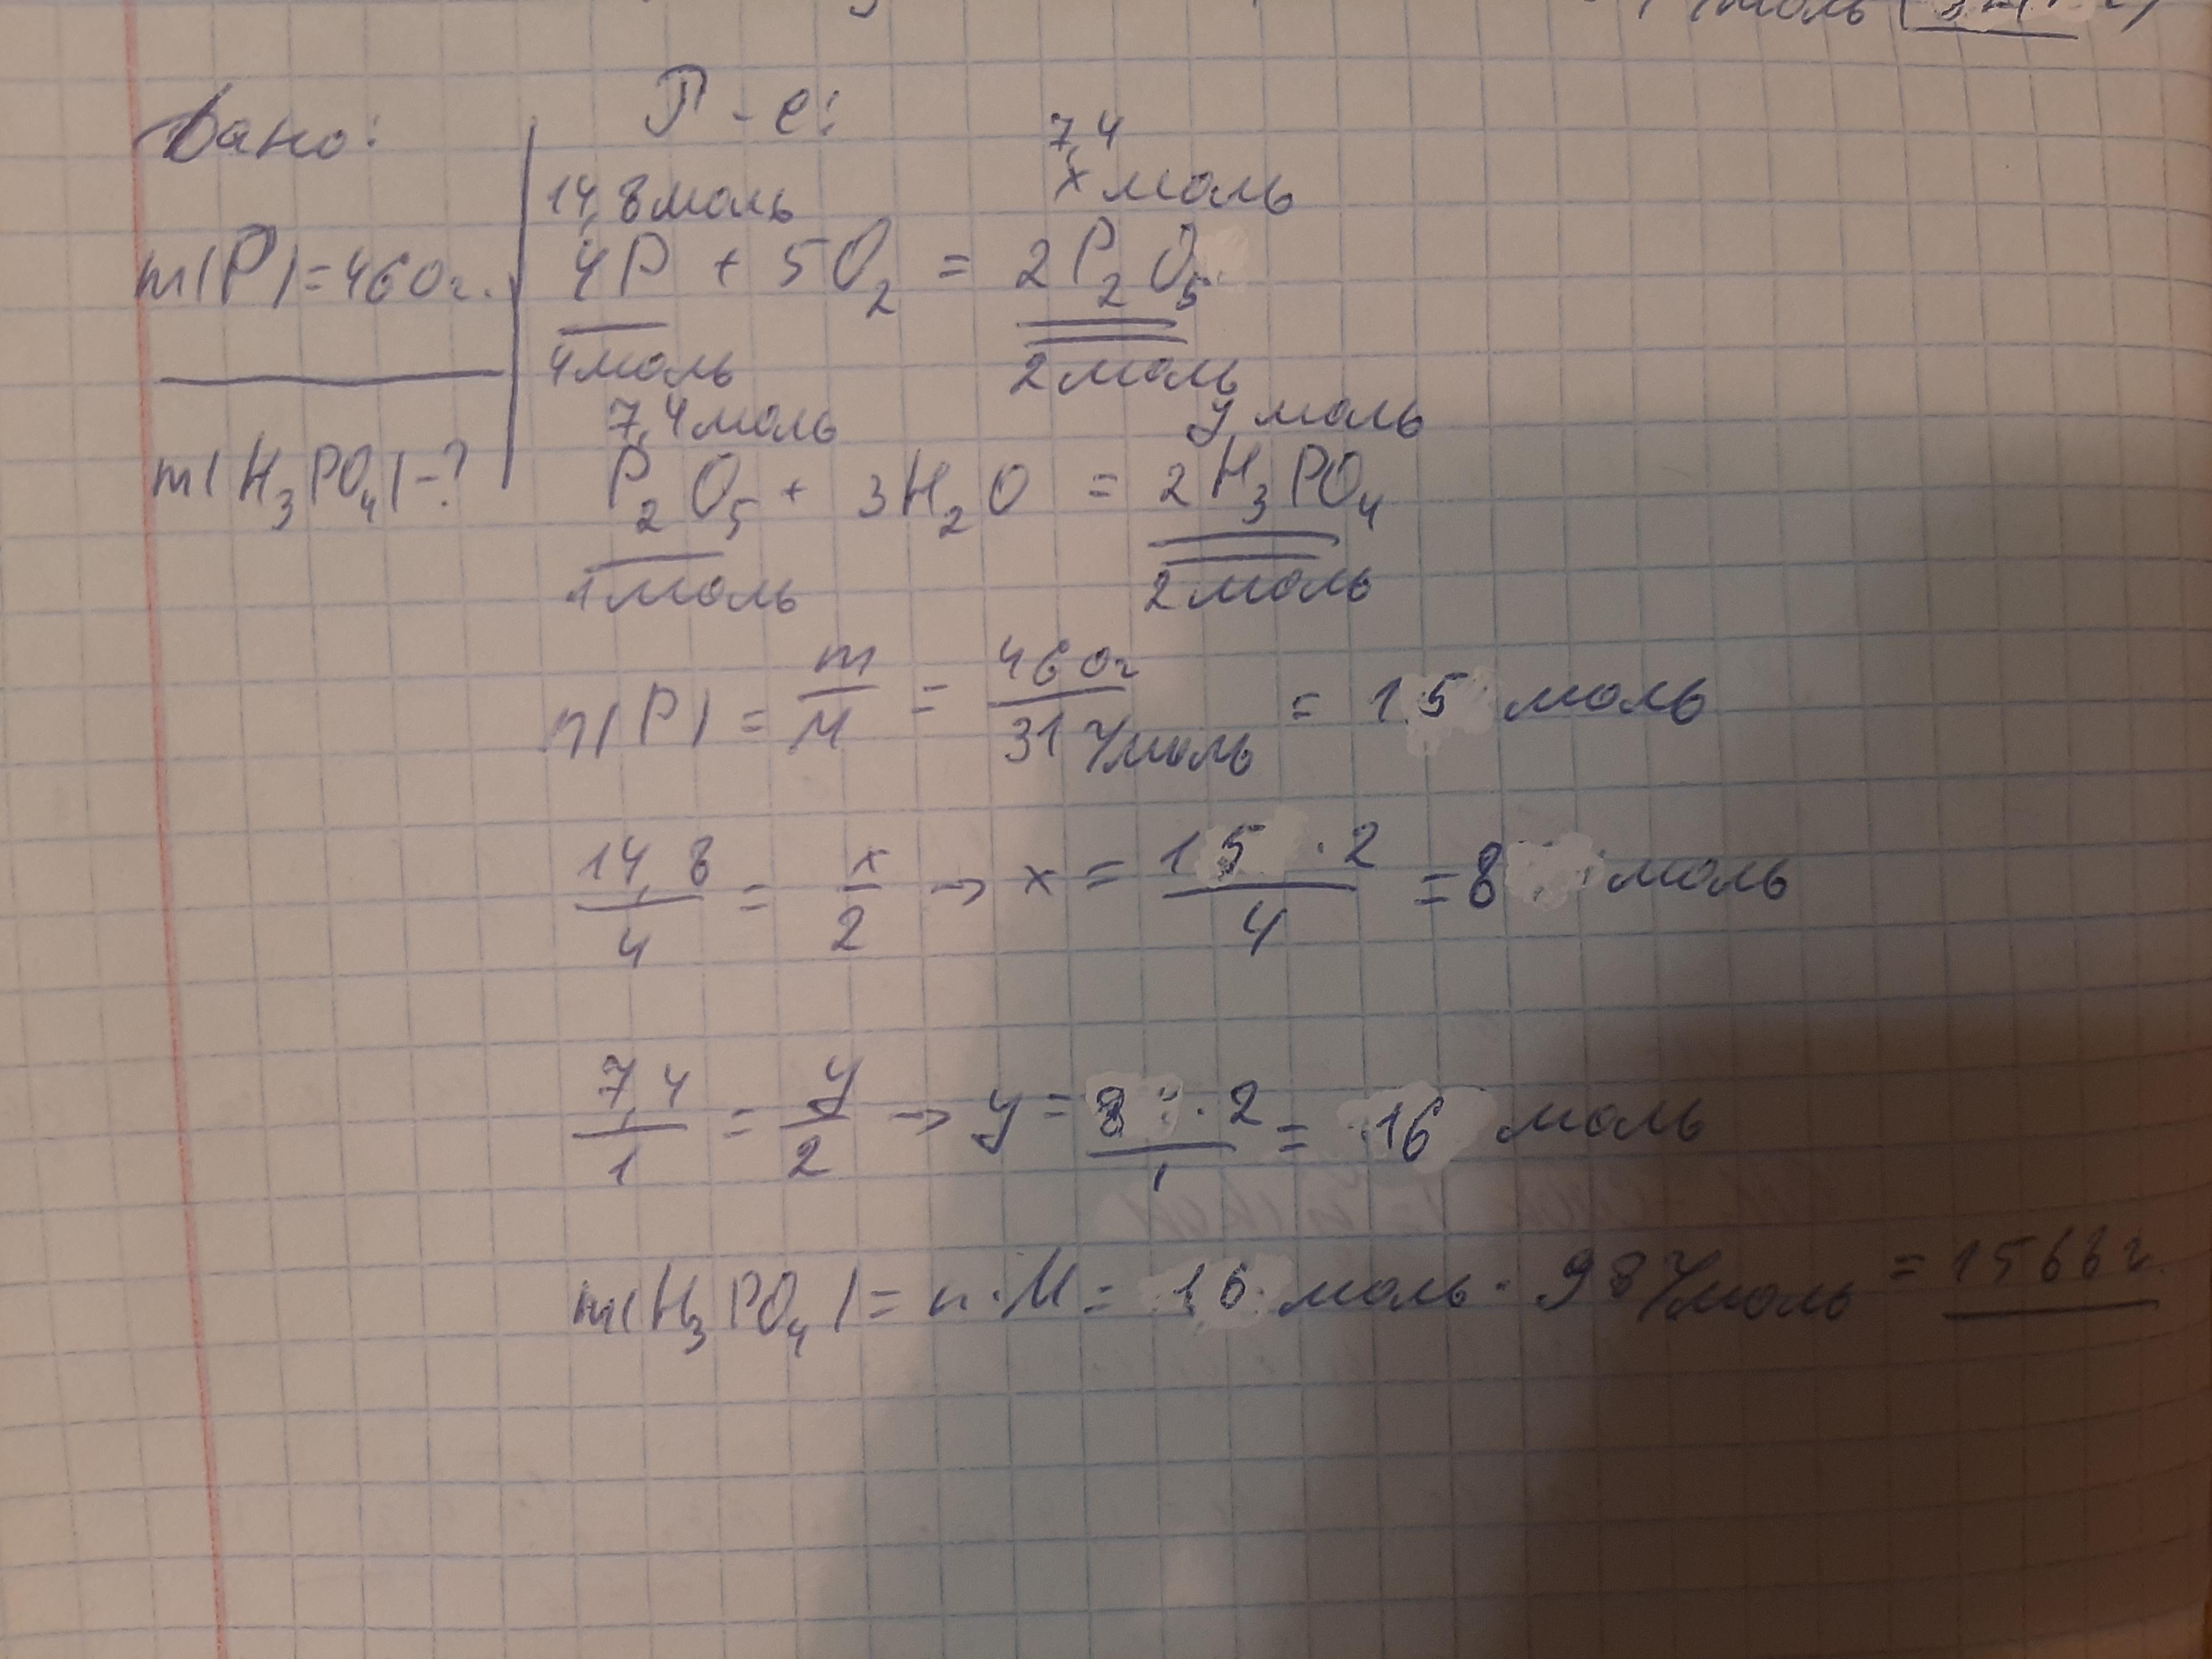 моль
Дано:
Р-е:
7,4
14,8 моль x моль
m(P)=460г. 4P + 5O₂ = 2P₂O₅
4 моль 2 моль
7,4 моль y моль
m(H₃PO₄)-? P₂O₅ + 3H₂O = 2H₃PO₄
1 моль 2 моль
n(P) = m/M = 460г/31 г/моль = 15 моль
14,8/4 = x/2 → x = 15 · 2/4 = 8 моль
7,4/1 = y/2 → y = 8 · 2/1 = 16 моль
m(H₃PO₄) = n · M = 16 моль · 98 г/моль = 1568г.